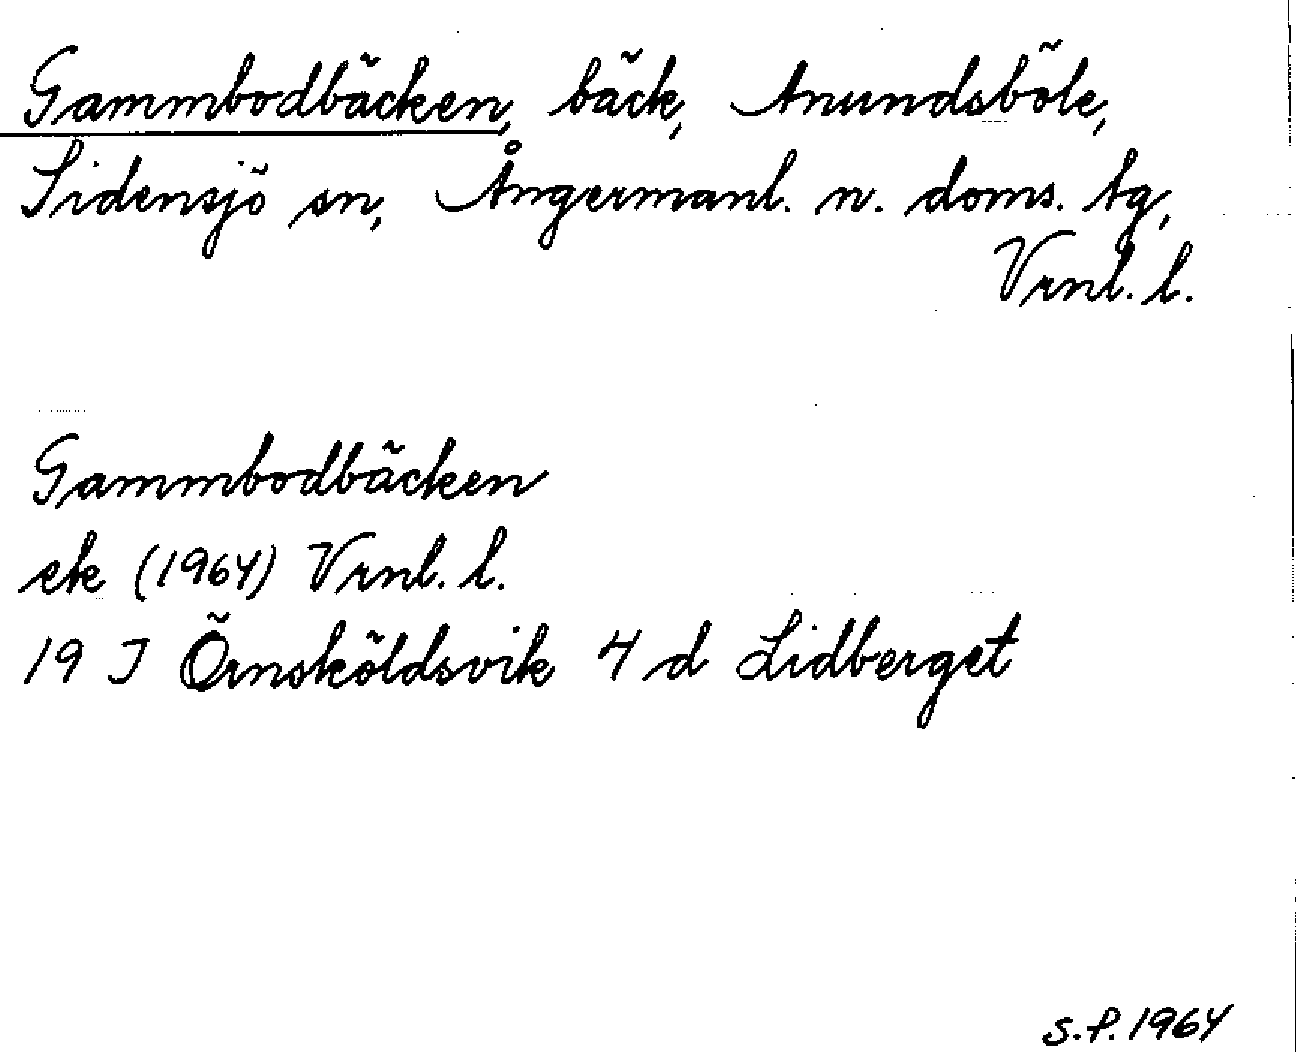 Gammbodbäcken, bäck, Anundsböle,
Sidensjö sn, Ångermanl. n. doms. tg,
Vrnl. l.
Gammbodbäcken
ek (1964) Vrnl. l.
19 J Örnsköldsvik 4 d Lidberget
S.P. 1964